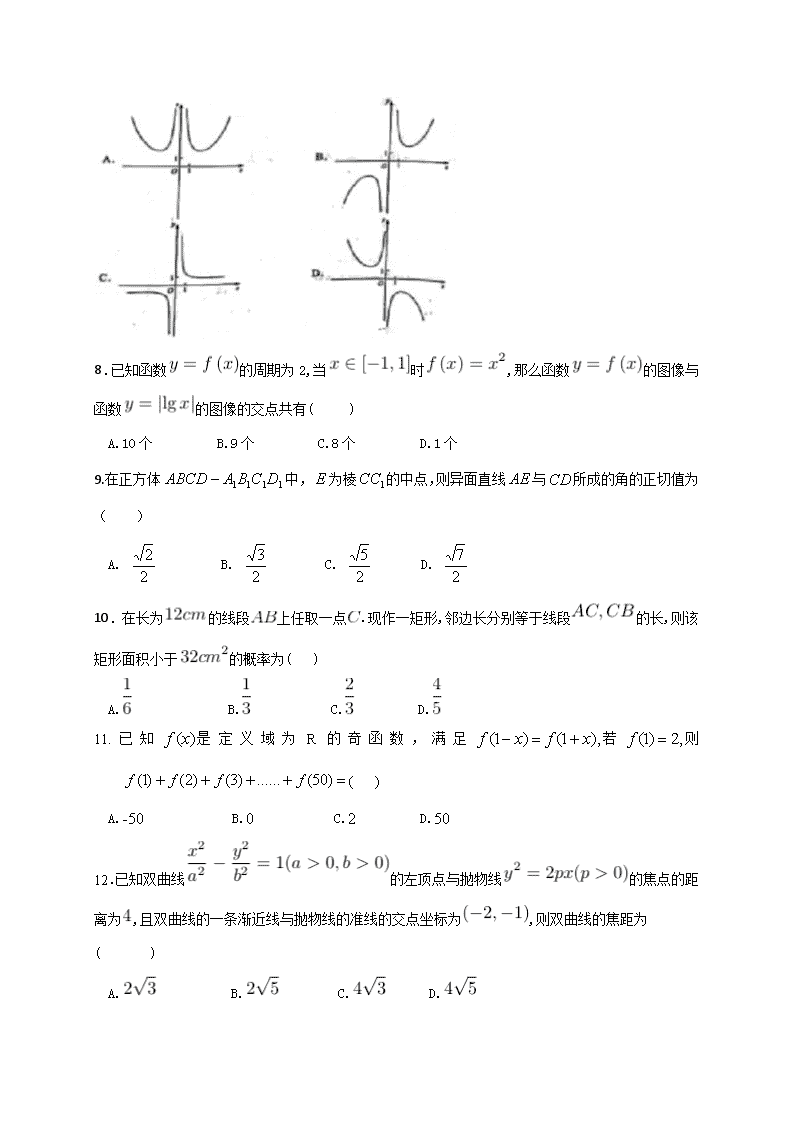 A.
B.
C.
D.
8.已知函数 y = f (x) 的周期为 2,当 x ∈ [−1, 1] 时 f (x) = x²,那么函数 y = f (x) 的图像与
函数 y = |lg x| 的图像的交点共有( )
A.10个 B.9个 C.8个 D.1个
9.在正方体 ABCD − A₁B₁C₁D₁ 中, E 为棱 CC₁ 的中点,则异面直线 AE 与 CD 所成的角的正切值为
( )
A. √2/2 B. √3/2 C. √5/2 D. √7/2
10. 在长为 12cm 的线段 AB 上任取一点 C.现作一矩形,邻边长分别等于线段 AC, CB 的长,则该
矩形面积小于 32cm² 的概率为( )
A. 1/6 B. 1/3 C. 2/3 D. 4/5
11. 已知 f(x) 是定义域为 R 的奇函数,满足 f(1−x) = f(1+x), 若 f(1) = 2, 则
f(1) + f(2) + f(3) + ...... + f(50) = ( )
A.-50 B.0 C.2 D.50
12.已知双曲线 x²/a² − y²/b² = 1(a > 0, b > 0) 的左顶点与抛物线 y² = 2px(p > 0) 的焦点的距
离为 4,且双曲线的一条渐近线与抛物线的准线的交点坐标为 (−2, −1),则双曲线的焦距为
( )
A. 2√3 B. 2√5 C. 4√3 D. 4√5